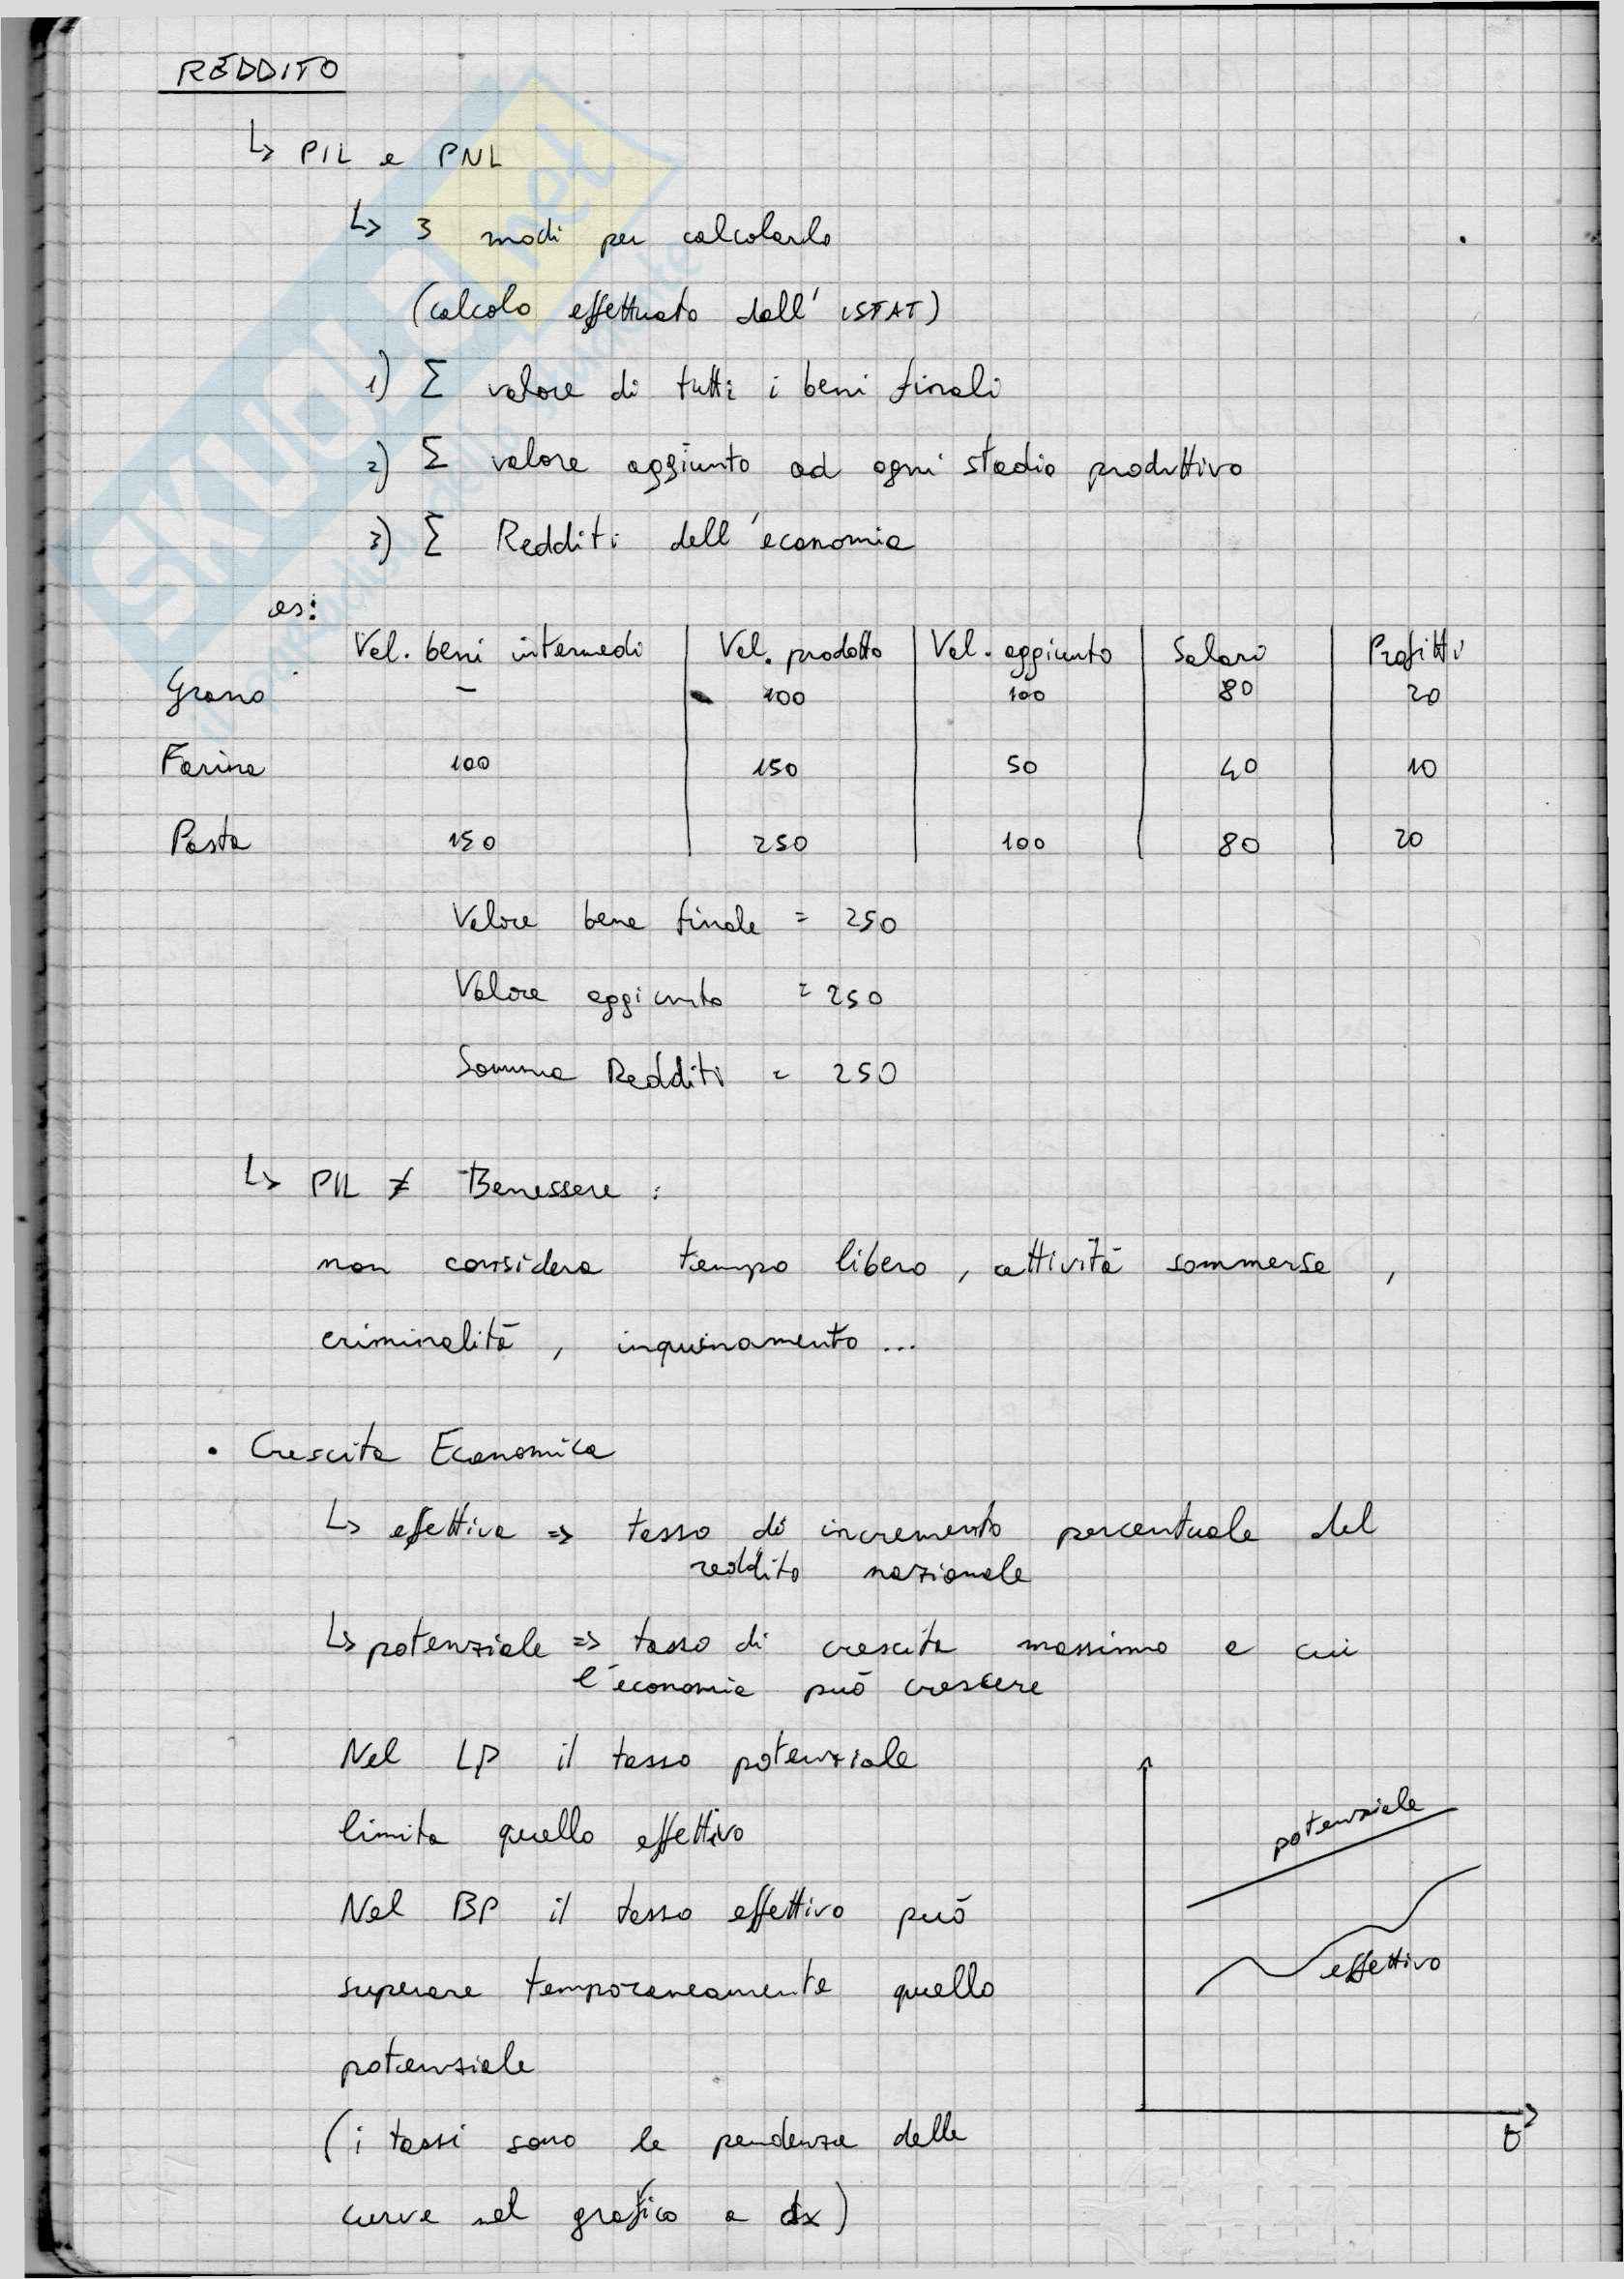 REDDITO
↳ PIL e PNL
↳ 3 modi per calcolarlo
(calcolo effettuato dall' ISTAT)
1) Σ valore di tutti i beni finali
2) Σ valore aggiunto ad ogni stadio produttivo
3) Σ Redditi dell'economia
es:
Val. beni intermedi | Val. prodotto | Val. aggiunto | Salari | Profitti
Grano - 100 100 80 20
Farina 100 150 50 40 10
Pasta 150 250 100 80 20
Valore bene finale = 250
Valore aggiunto = 250
Somma Redditi = 250
↳ PIL ≠ Benessere :
non considera tempo libero, attività sommerse,
criminalità, inquinamento...
• Crescita Economica
↳ effettiva => tasso di incremento percentuale del
reddito nazionale
↳ potenziale => tasso di crescita massimo a cui
l'economia può crescere
Nel LP il tasso potenziale
limita quello effettivo
Nel BP il tasso effettivo può
superare temporaneamente quello
potenziale
(i tassi sono le pendenze delle
curve nel grafico a dx)
potenziale
effettivo
t
SKUOLA.net